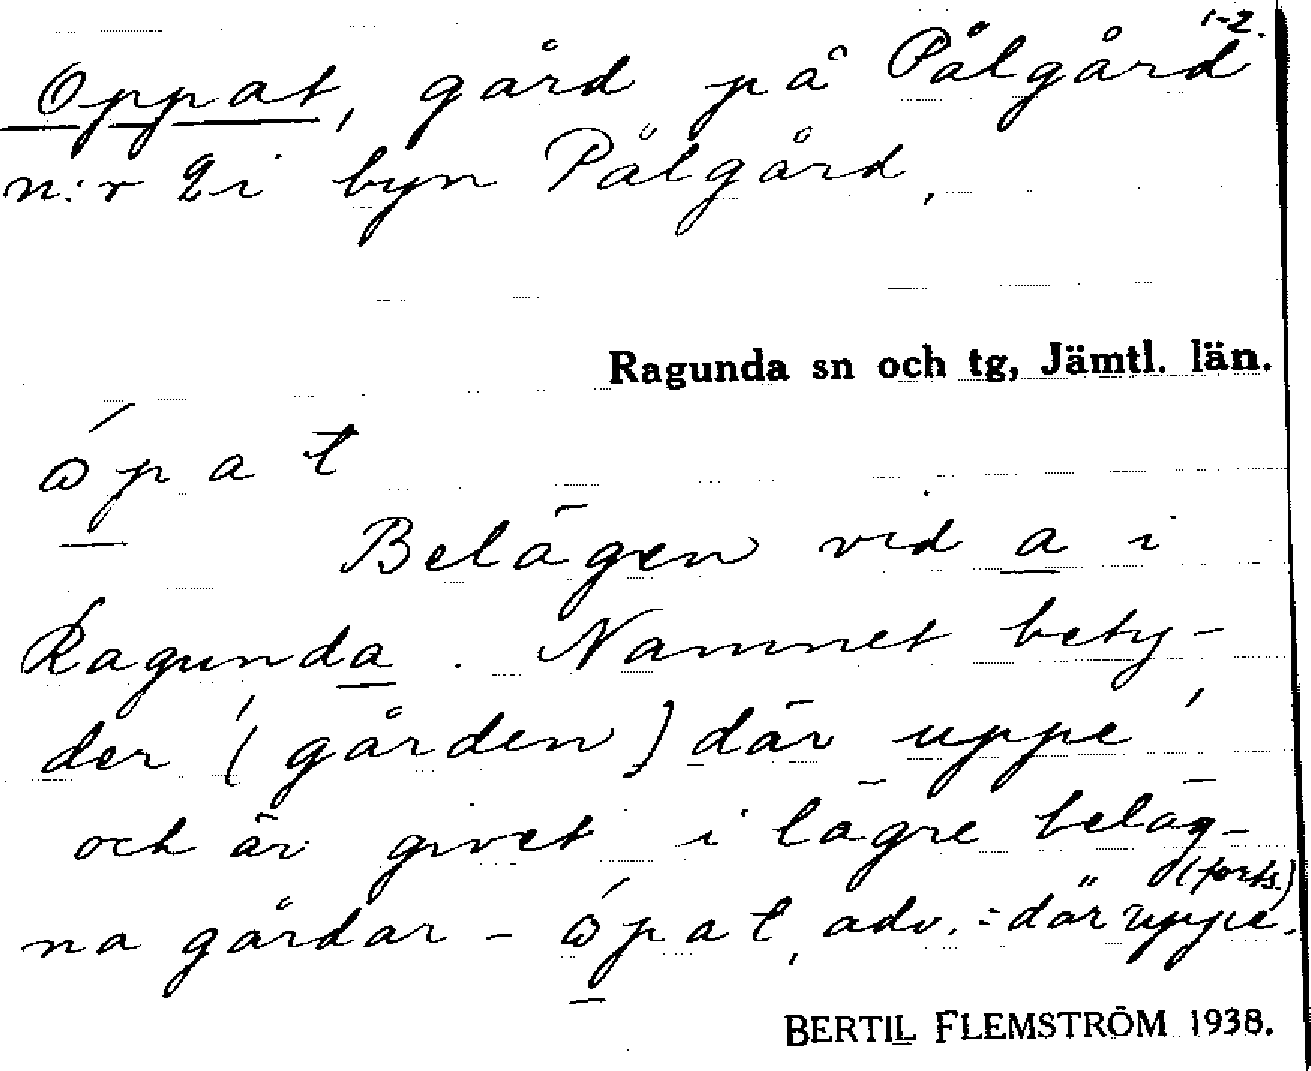 1-2.
Oppat, gård på Pålgård
n:r 2 i byn Pålgård.
Ragunda sn och tg, Jämtl. län.
ópat
Belägen vid a i
Ragunda. Namnet bety-
der '(gården) där uppe'
och är givet i lägre beläg-
na gårdar - ópat, adv. = där uppe.
(forts.)
BERTIL FLEMSTRÖM 1938.